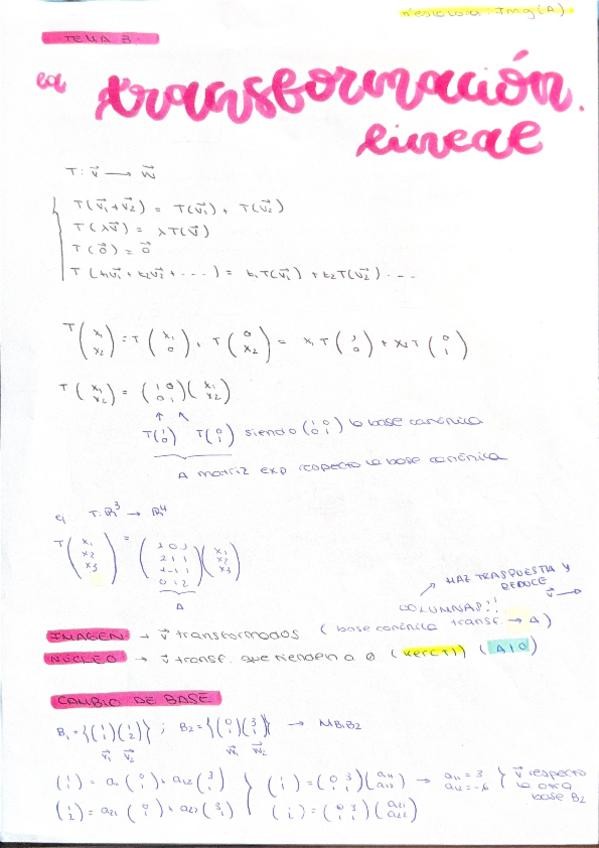 TEMA 3.
la transformación
lineal
T: v⃗ → w⃗
T(v⃗₁+v⃗₂) = T(v⃗₁) + T(v⃗₂)
T(λv⃗) = λT(v⃗)
T(0⃗) = 0⃗
T(k₁v⃗₁ + k₂v⃗₂ + ...) = k₁T(v⃗₁) + k₂T(v⃗₂) ...
T(x₁ x₂) = T(x₁ 0) + T(0 x₂) = x₁T(1 0) + x₂T(0 1)
T(x₁ x₂) = (1 0 0 1)(x₁ x₂)
T(1 0) T(0 1) siendo (1 0 0 1) la base canónica
A matriz exp respecto la base canónica
ej T: R³ → R⁴
T(x₁ x₂ x₃) =
A
HAZ TRASPUESTA Y
REDUCE
COLUMNAS!!
IMAGEN → v⃗ transformados (base canónica transf. → A)
NÚCLEO → v⃗ transf. que tienden a 0 (Ker(T)) (A|0)
CAMBIO DE BASE
B₁ = {(1 1)(1 2)} ; B₂ = {(0 1)(3 1)} → MB₁B₂
v⃗₁ v⃗₂ w⃗₁ w⃗₂
(1 1) = a₁₁(0 1) + a₁₂(3 1)
v⃗ respecto
la otra
base B₂
(1 2) = a₂₁(0 1) + a₂₂(3 1)